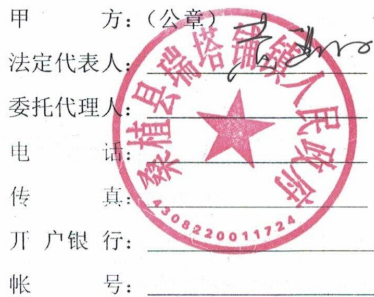 甲 方：（公章）
法定代表人：
委托代理人：
电 话：
传 真：
开 户 银 行：
帐 号：
桑植县瑞塔铺镇人民政府
4308220011724